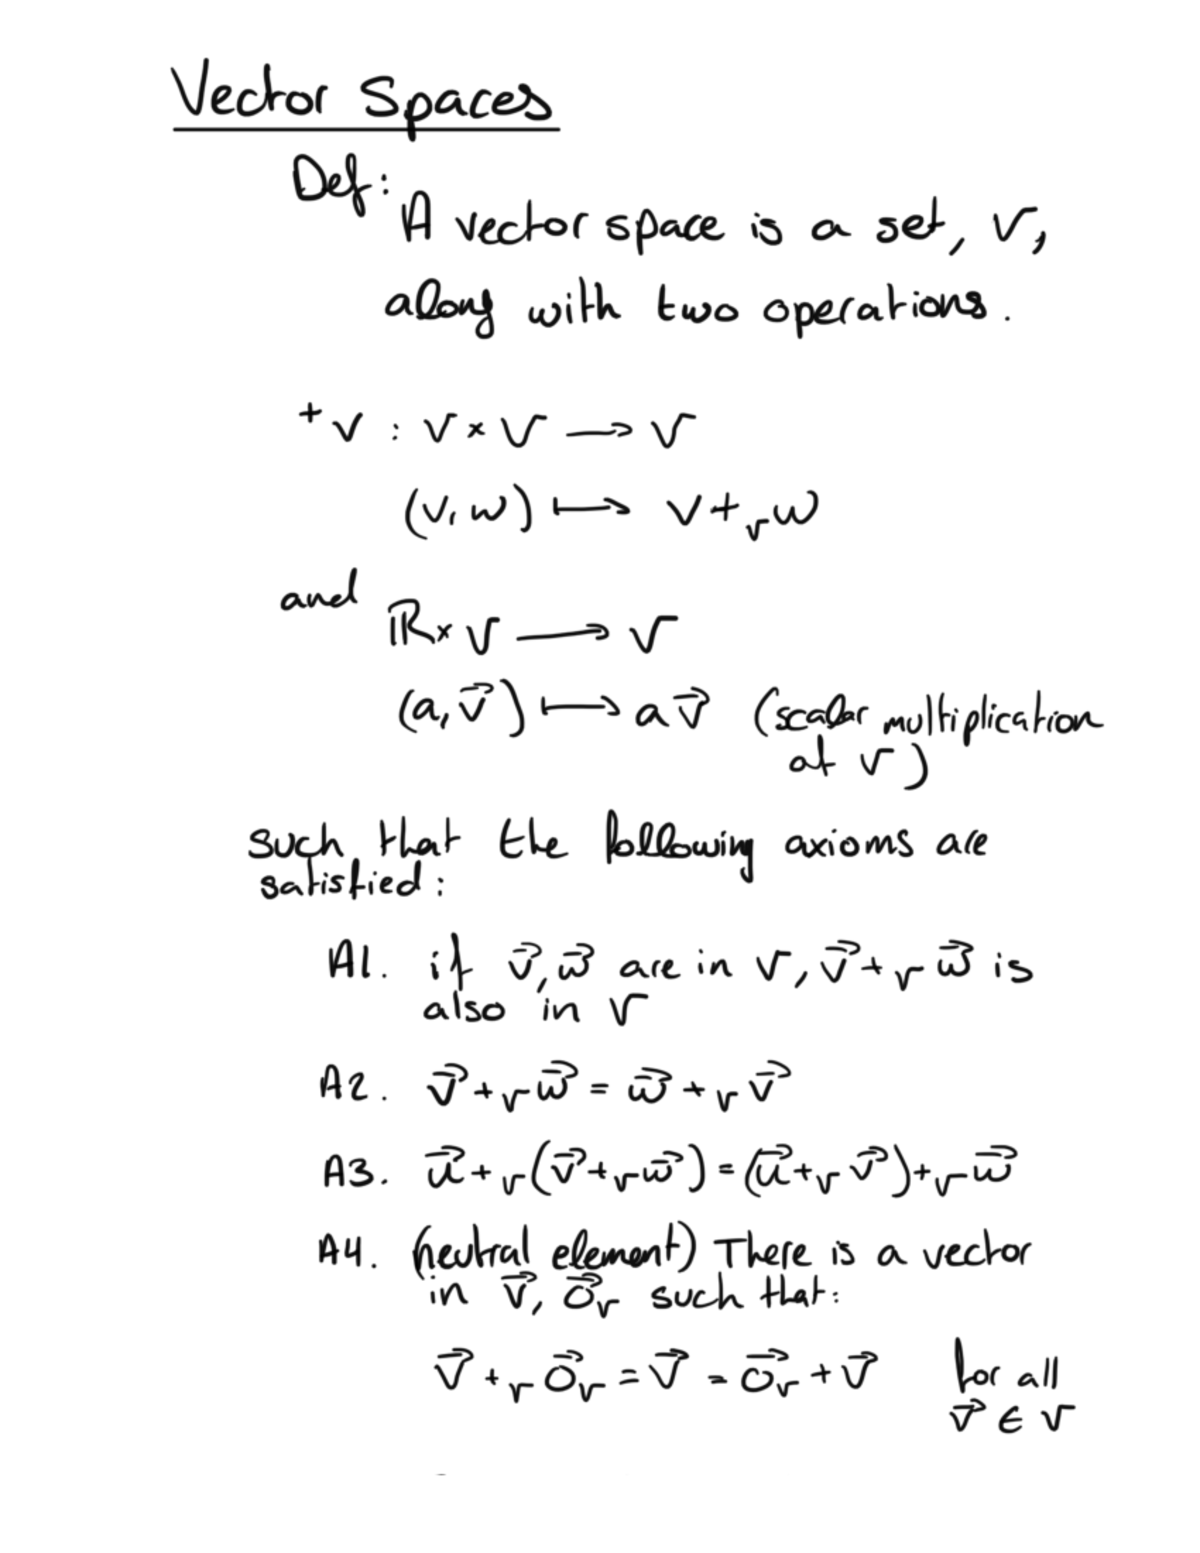 Vector Spaces
Def:
A vector space is a set, V,
along with two operations.
+V : V × V ⟶ V
(v, w) ⟼ v +_V w
and
ℝ × V ⟶ V
(a, v⃗) ⟼ a v⃗ (scalar multiplication
at V)
such that the following axioms are
satisfied:
A1. if v⃗, w⃗ are in V, v⃗ +_V w⃗ is
also in V
A2. v⃗ +_V w⃗ = w⃗ +_V v⃗
A3. u⃗ +_V (v⃗ +_V w⃗) = (u⃗ +_V v⃗) +_V w⃗
A4. (neutral element) There is a vector
in v⃗, 0⃗_V such that:
v⃗ +_V 0⃗_V = v⃗ = 0⃗_V + v⃗ for all
v⃗ ∈ V